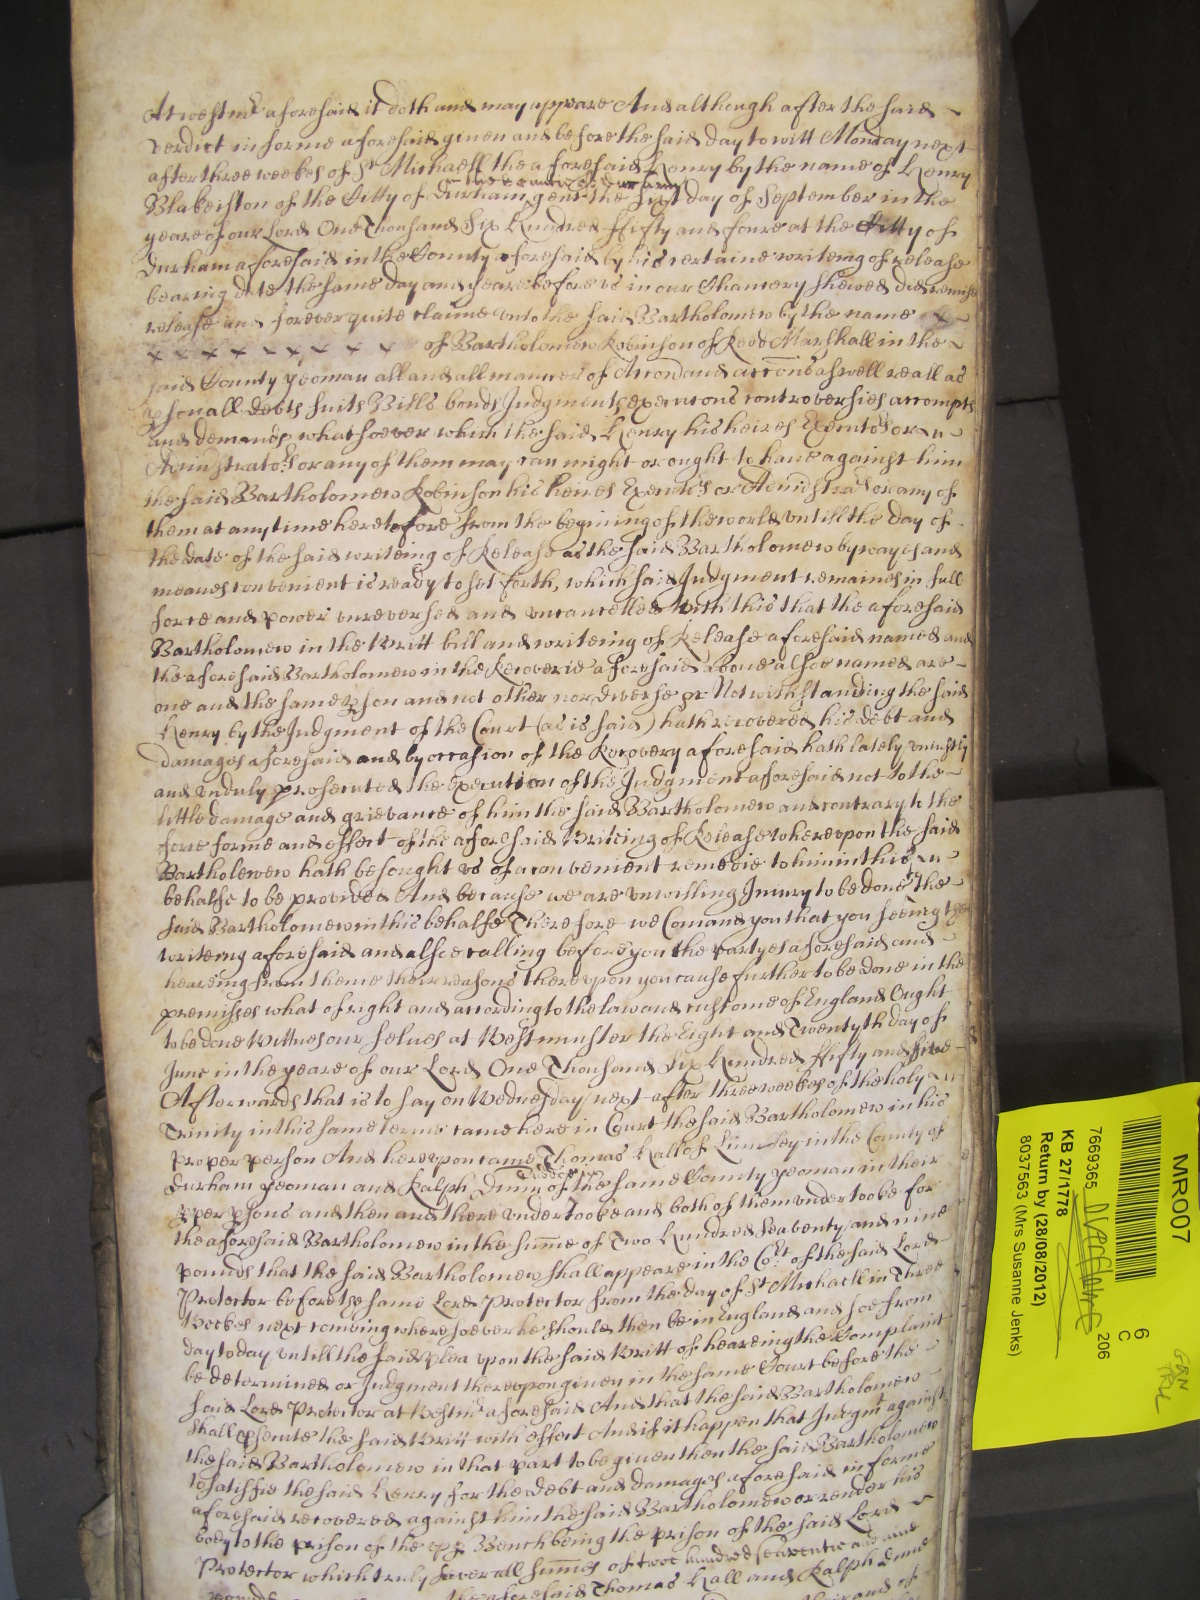 At westmr aforesaid it doth and may appeare And although after the said
verdict in forme aforesaid given and before the said day to witt Monday next
after three weekes of St Michaell the aforesaid Henry by the name of Henry
Blakeiston of the Citty of Durham gent the first day of September in the
yeare of our Lord One Thousand Six Hundred ffifty and foure at the Citty of
Durham aforesaid in the County aforesaid by his certaine writeing of release
bearing date the same day and yeare before us in our Chancery shewed did remise
release and forever quite claime unto the said Bartholomew by the name
of Bartholomew Robinson of Marshall in the
said County yeoman all and all manner of Accons and accons aswell reall as
psonall debts suits Bills bonds Judgments execucons controversies accompts
and demands whatsoever which the said Henry his heires Executors or
Administrators or any of them may can might or ought to have against him
the said Bartholomew Robinson his heires Executrs or Administrators or any of
them at any time heretofore from the begining of the world untill the day of
the date of the said writeing of Release as the said Bartholomew by wayes and
meanes convenient is ready to set forth, which said Judgment remaines in full
force and power unreversed and uncancelled With this that the aforesaid
Bartholomew in the Writt bill and writeing of Release aforesaid named and
the aforesaid Bartholomew in the Recoverie aforesaid above alsoe named are
one and the same pson and not other nor diverse Notwithstanding the said
Henry by the Judgment of the Court (as is said) hath recovered his debt and
damages aforesaid and by occasion of the Recovery aforesaid hath lately uniustly
and unduly prosecuted the execution of the Judgment aforesaid not to the
little damage and grievance of him the said Bartholomew and contrary to the
force forme and effect of the aforesaid Writeing of Release whereupon the said
Bartholewew hath besought us of a convenient remedie to him in this
behalfe to be provided And because we are unwilling Iniury to be done to the
said Bartholomew in this behalfe Therefore we Comand you that you seeing the
writeing aforesaid and alsoe calling before you the partyes aforesaid and
heareing from theme their reasons thereupon you cause further to be done in the
premisses what of right and according to the law and custome of England Ought
to be done Wittnes our selves at Westminster the Eight and Twentyth day of
June in the yeare of our Lord One Thousand Six Hundred ffifty and five
Afterwards that is to say on Wednesday next after three weekes of the holy
Trinity in this same terme came here in Court the said Bartholomew in his
proper person And hereupon came Thomas Hall of Lumley in the County of
Durham yeoman and Ralph Dunn of the same County yeoman in their
pper psons and then and there undertooke and both of them undertooke for
the aforesaid Bartholomew in the summe of Two Hundred Seaventy and nine
pounds that the said Bartholomew shall appeare in the Cort of the said Lord
Protector before the same Lord Protector from the day of St Michaell in Three
Weekes next comeing wheresoever he should then be in England and soe from
day to day untill the said plea upon the said Writt of heareing the Complaint
be determined or Judgment thereupon given in the same Court before the
said Lord Protector at Westmr aforesaid And that the said Bartholomew
shall psecute the said Writt with effect And if it happen that Judgmt against
the said Bartholomew in that part to be given then the said Bartholomew
to satisfie the said Henry for the debt and damages aforesaid in forme
aforesaid recovered against him the said Bartholomew or render his
body to the prison of the upp Bench being the prison of the said Lord
Protector which truly severall summes of two hundred seaventie and nine
pounds the aforesaid Thomas Hall and Ralph Dunn
MR007
6
C
206
7669365
KB 27/1778
Return by (28/08/2012)
8037563 (Mrs Susanne Jenks)